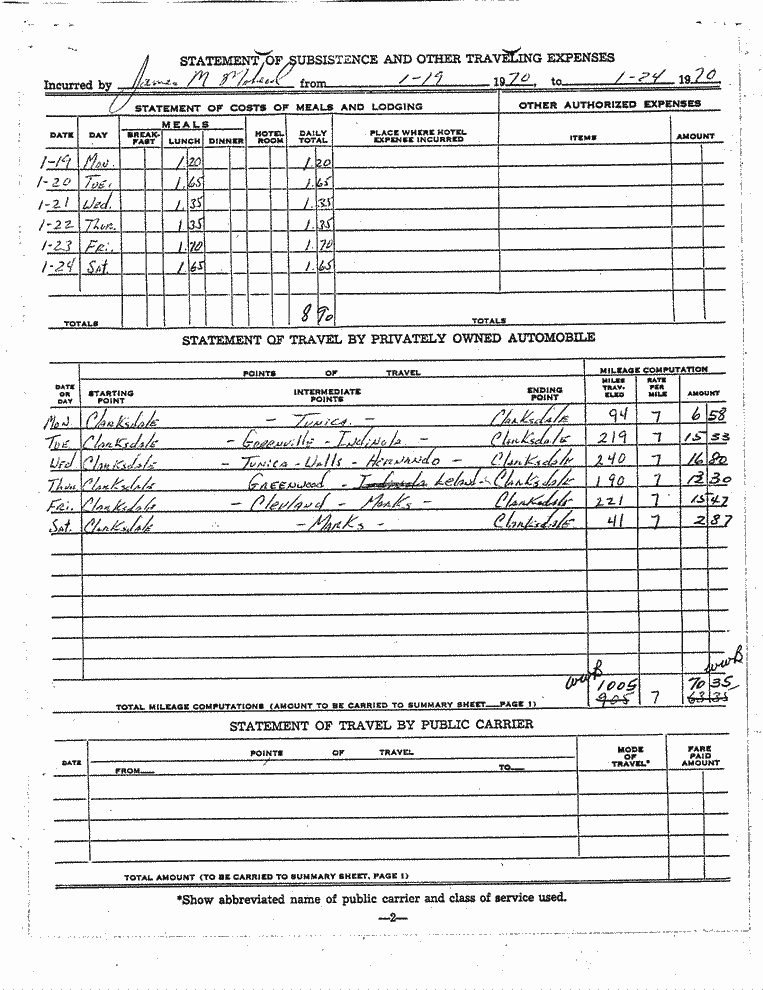 STATEMENT OF SUBSISTENCE AND OTHER TRAVELING EXPENSES
Incurred by James M from 1-19 1970, to 1-24 1970
STATEMENT OF COSTS OF MEALS AND LODGING OTHER AUTHORIZED EXPENSES
DATE DAY MEALS BREAK-FAST LUNCH DINNER HOTEL ROOM DAILY TOTAL PLACE WHERE HOTEL EXPENSE INCURRED ITEMS AMOUNT
1-19 Mon. 1.20 1.20
1-20 Tue. 1.65 1.65
1-21 Wed. 1.35 1.35
1-22 Thur. 1 35 1.35
1-23 Fri. 1.70 1.70
1-24 Sat. 1.65 1.65
TOTALS 8 90 TOTALS
STATEMENT OF TRAVEL BY PRIVATELY OWNED AUTOMOBILE
POINTS OF TRAVEL MILEAGE COMPUTATION
DATE OR DAY STARTING POINT INTERMEDIATE POINTS ENDING POINT MILES TRAV-ELED RATE PER MILE AMOUNT
Mon Clarksdale - Tunica - Clarksdale 94 7 6 58
Tue Clarksdale - Greenville - Indinola - Clarksdale 219 7 15 33
Wed Clarksdale - Tunica - Walls - Hernando - Clarksdale 240 7 16 80
Thur Clarksdale Greenwood - Indinola Leland - Clarksdale 190 7 13 30
Fri. Clarksdale - Cleveland - Marks - Clarksdale 221 7 15 47
Sat. Clarksdale - Marks - Clarksdale 41 7 2 87
wwB wwB
1005 70 35
TOTAL MILEAGE COMPUTATIONS (AMOUNT TO BE CARRIED TO SUMMARY SHEET—PAGE 1) 905 7 63 35
STATEMENT OF TRAVEL BY PUBLIC CARRIER
DATE POINTS OF TRAVEL MODE OF TRAVEL* FARE PAID AMOUNT
FROM— TO—
TOTAL AMOUNT (TO BE CARRIED TO SUMMARY SHEET, PAGE 1)
*Show abbreviated name of public carrier and class of service used.
—2—